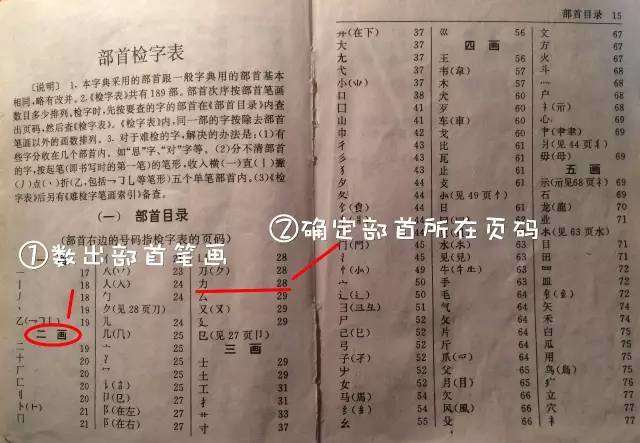 部首目录 15
部首检字表
〔说明〕 1. 本字典采用的部首跟一般字典用的部首基本
相同,略有改并。2.《检字表》共有189部。部首次序按部首笔画
数目多少排列。检字时,先按要查的字的部首在《部首目录》内查
出页码,然后查《检字表》。《检字表》内,同一部的字按除去部首
笔画以外的画数排列。3. 对于难检的字,解决的办法是:(1)有
些字分收在几个部首内。如“思”字、“对”字等。(2)分不清部首
的字,按起笔(即书写时的第一笔)的笔形,收入横(一)直(丨)撇
(丿)点(丶)折(乙,包括㇕㇆乚等笔形)五个单笔部首内。(3)《检
字表》后另有《难检字笔画索引》备查。
(一) 部首目录
(部首右边的号码指检字表的页码)
①数出部首笔画
②确定部首所在页码
一 17
丨 18
丿 18
丶 19
二 画
二 19
十 20
厂 20
匚 20
卜(⺊) 21
冂 21
八(丷) 23
人(入) 24
勹 24
夕(见28页刀)
儿 24
几(几) 25
亠 25
冫 25
讠(言) 25
卩(㔾) 26
阝(在左) 27
阝(在右) 27
28
刀(⺈) 28
力 28
厶 29
又(又) 29
廴 29
㔾(见27页卩)
三 画
土 29
士 29
工 31
扌 31
艹 33
寸 37
廾(在下) 37
大 37
尢 37
弋 37
小(⺌) 37
口 38
囗 41
山 41
巾 42
彳 42
彡 42
夕 42
夂 42
犭 42
饣(食) 44
门(門) 45
忄(⺗) 49
辶(辶) 51
彐(彑彐) 52
尸 52
己(巳) 52
弓 52
子(孑) 52
屮 52
女 52
马(馬) 54
纟(糹) 54
幺 55
巛 56
四 画
王 56
韦(韋) 57
木 57
犬 60
歹 60
车(車) 60
戈 61
比 61
瓦 61
止 61
日 61
曰 62
贝(貝) 63
见(見) 63
牛(牜) 63
手 64
毛 64
气 64
攵 64
片 64
斤 64
爪(爫) 64
父 65
月(⺼) 65
欠 66
风(風) 66
殳 66
文 67
方 67
火 67
斗 68
灬 68
户 68
礻(示) 68
心 69
肀(肀⺻) 69
爿(见44页丬)
毋(母) 69
五 画
示(见68页礻)
石 69
龙(龍) 70
业 71
水(见63页水)
目 71
田 71
罒 72
皿 72
钅(金) 72
生 74
矢 74
禾 74
白 75
瓜 75
用 75
鸟(鳥) 75
疒 76
立 77
穴 77
衤 77